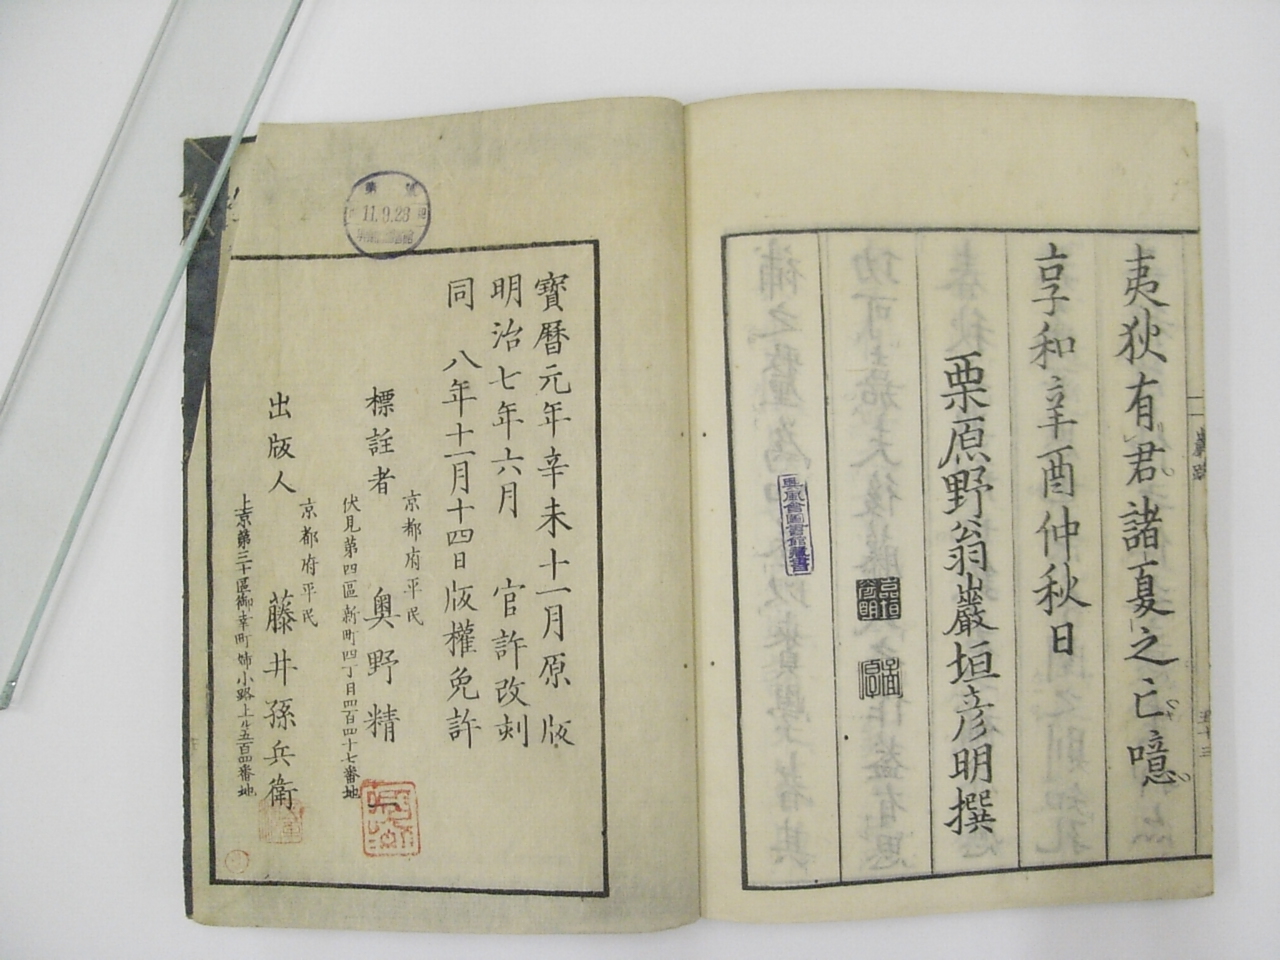 夷狄有君諸夏之亡噫
享和辛酉仲秋日
栗原野翁巖垣彦明撰
奥風會圖書館藏書
11.9.23
寶暦元年辛未十一月原版
明治七年六月 官許改刻
同 八年十一月十四日版權免許
京都府平民
標註者 奥野精一
伏見第四區新町四丁目四百四十七番地
京都府平民
出版人 藤井孫兵衛
上京第三十區御幸町姉小路上ル五百四番地